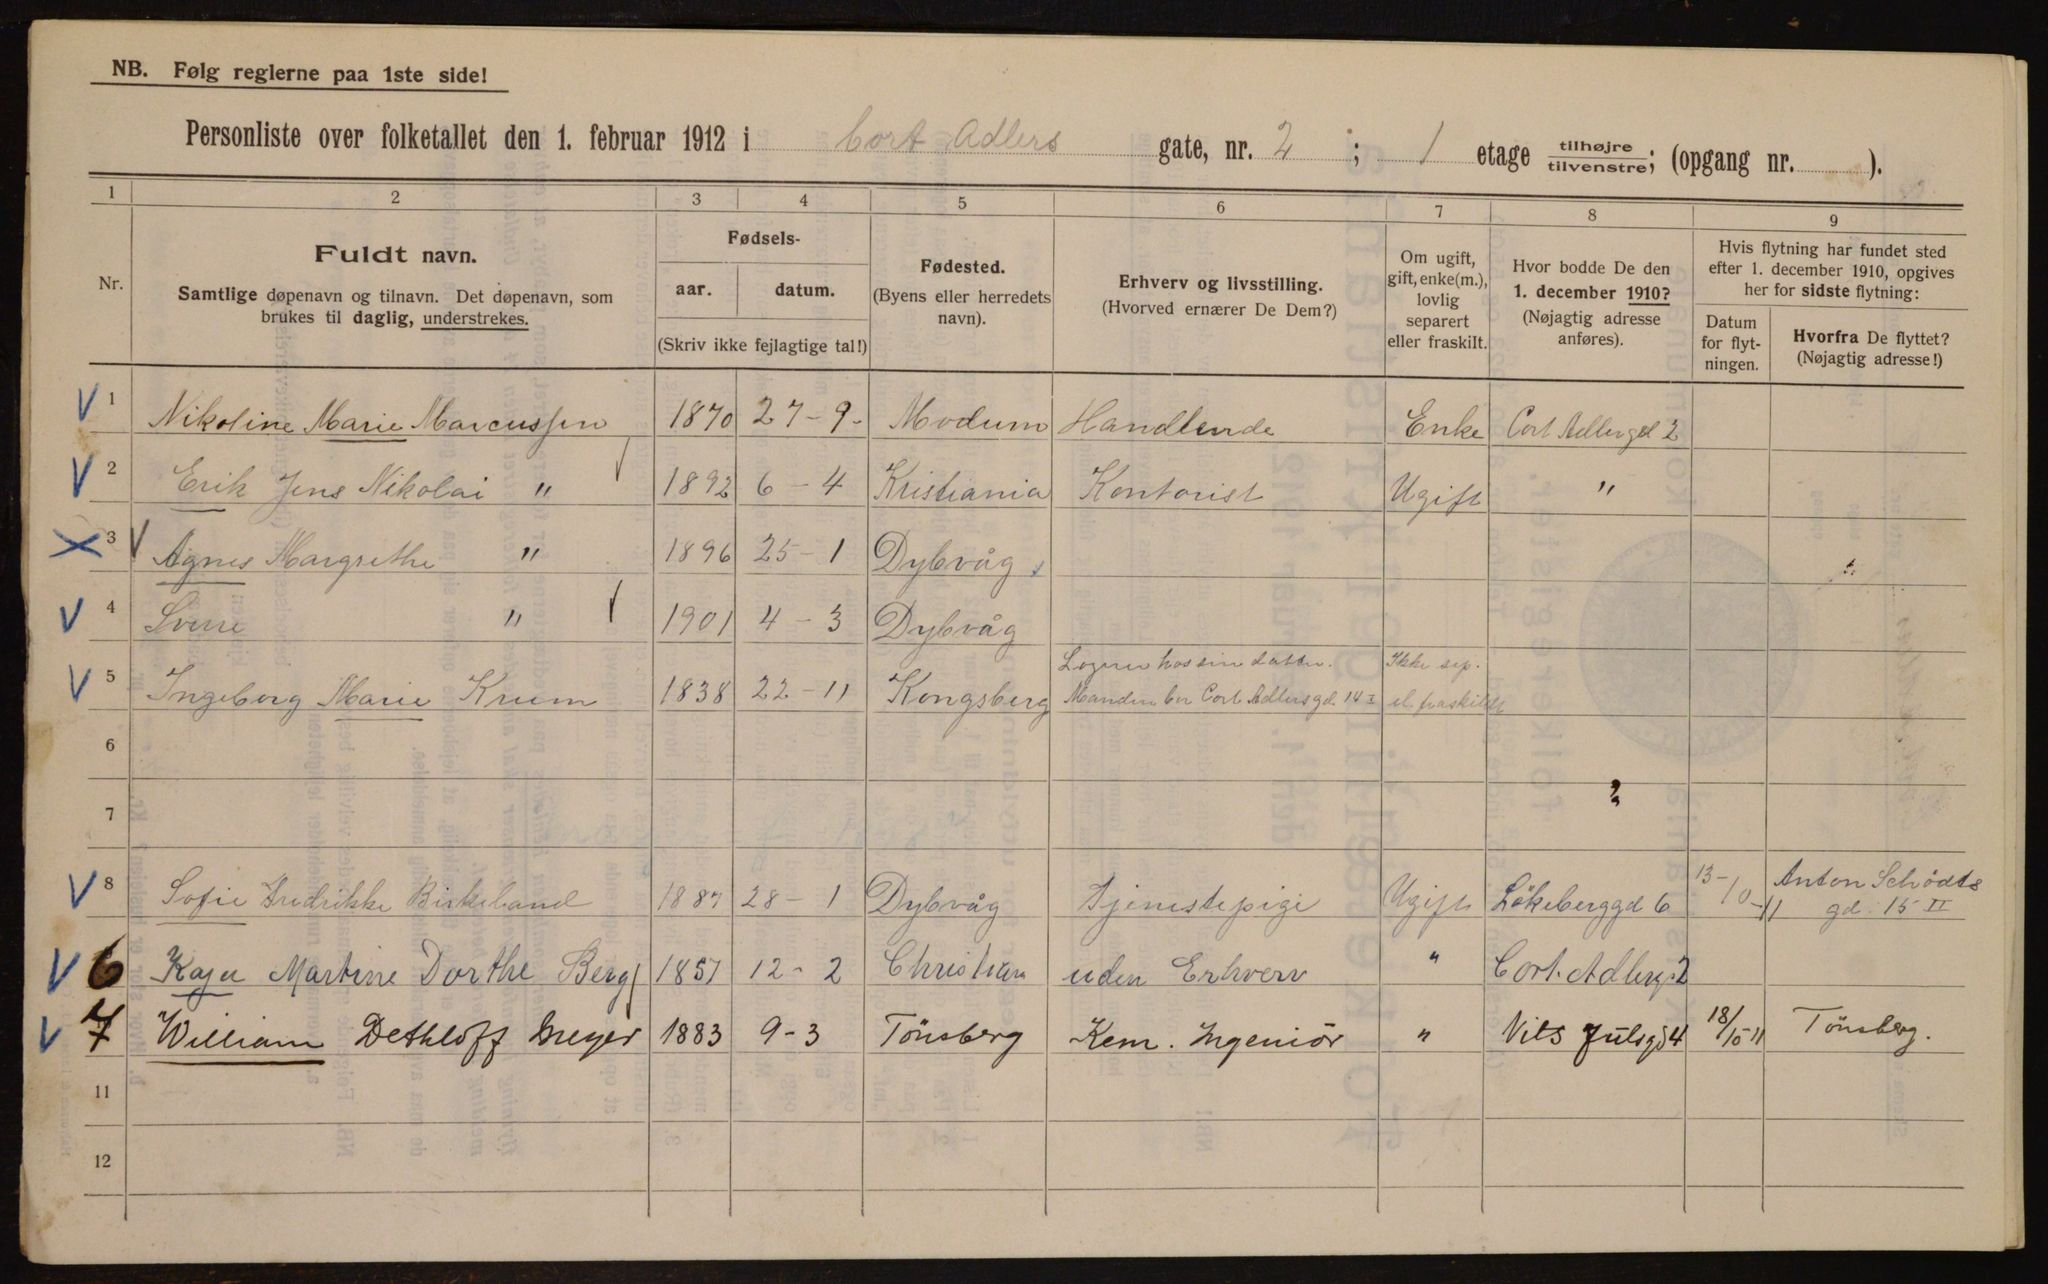 NB. Følg reglerne paa 1ste side!
Personliste over folketallet den 1. februar 1912 i Cort Adlers gate, nr. 2 ; 1 etage tilhøjre/tilvenstre; (opgang nr. ).
1 2 3 4 5 6 7 8 9
Nr.
Fuldt navn.
Samtlige døpenavn og tilnavn. Det døpenavn, som
brukes til daglig, understrekes.
Fødsels-
aar. datum.
(Skriv ikke fejlagtige tal!)
Fødested.
(Byens eller herredets
navn).
Erhverv og livsstilling.
(Hvorved ernærer De Dem?)
Om ugift,
gift, enke(m.),
lovlig
separert
eller fraskilt.
Hvor bodde De den
1. december 1910?
(Nøjagtig adresse
anføres).
Hvis flytning har fundet sted
efter 1. december 1910, opgives
her for sidste flytning:
Datum
for flyt-
ningen.
Hvorfra De flyttet?
(Nøjagtig adresse!)
1 Nikoline Marie Marcussen 1870 27-9- Modum Handlende Enke Cort Adlergd 2
2 Erik Jens Nikolai " 1892 6-4 Kristiania Kontorist Ugift "
3 Agnes Margrethe " 1896 25-1 Dybvåg
4 Sverre " 1901 4-3 Dybvåg
5 Ingeborg Marie Krum 1838 22-11 Kongsberg Logerer hos sin datter. Ikke sep.
Manden bor Cort Adlersgd. 14 I el. fraskildt
6
7
8 Sofie Fredrikke Birkeland 1887 28-1 Dybvåg Tjenestepige Ugift Lökeberggd 6 13-/10-11 Anton Schödts
gd. 15 II
6 Kaja Martine Dorthe Berg 1857 12-2 Christiania uden Erhverv " Cort. Adlersg. 2
7 William Dethloff Meyer 1883 9-3 Tönsberg Kem. Ingeniör " Nils Julsgd 4 18/10 11 Tönsberg.
11
12